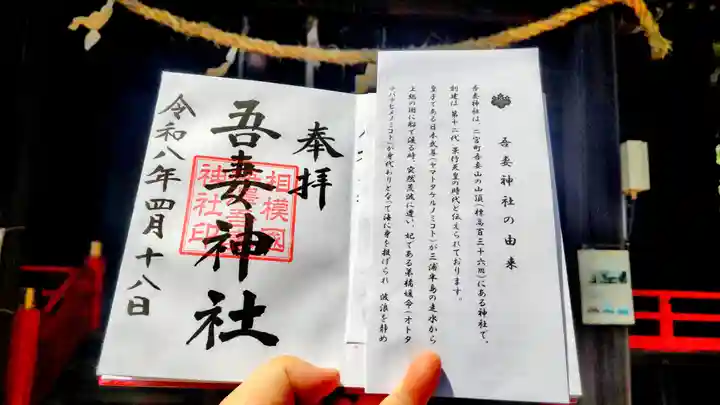 奉拝
吾妻神社
相模國
吾妻神社印
令和八年四月十八日
吾妻神社の由来
吾妻神社は、二宮町吾妻山の山頂(標高百三十六m)にある神社で、
創建は、第十二代 景行天皇の時代と伝えられております。
皇子である日本武尊(ヤマトタケルノミコト)が三浦半島の走水から
上総の国に船で渡る時、突然荒波に遭い、妃である弟橘媛命(オトタ
チバナヒメノミコト)が身代わりとなって海に身を投げられ 波浪を静め